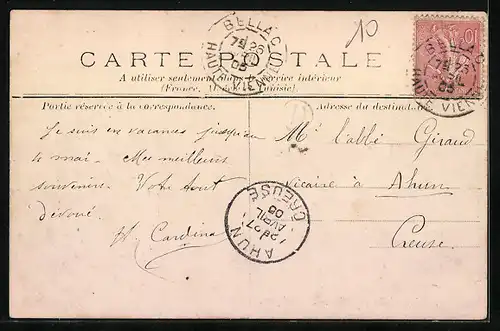 10
CARTE POSTALE
A utiliser seulement dans le service intérieur
(France, Algérie et Tunisie).
BELLAC
7E 26
05
HAUTE VIENNE
BELLAC
7E 26
05
HAUTE VIENNE
10
Partie réservée à la correspondance.
Adresse du destinataire
Je suis en vacances jusqu'au
4 mai - Mes meilleurs
souvenirs. Votre tout
dévoué.
Mr l'abbé Giraud
Vicaire à Ahun
Creuse.
AHUN
27
AVRIL
05
CREUSE